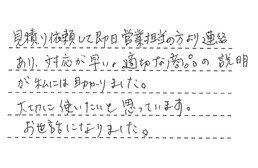 見積り依頼して即日営業担当の方より連絡
あり、対応が早い。適切な商品の説明
が私には助かりました。
大切に使いたいと思っています。
お世話になりました。